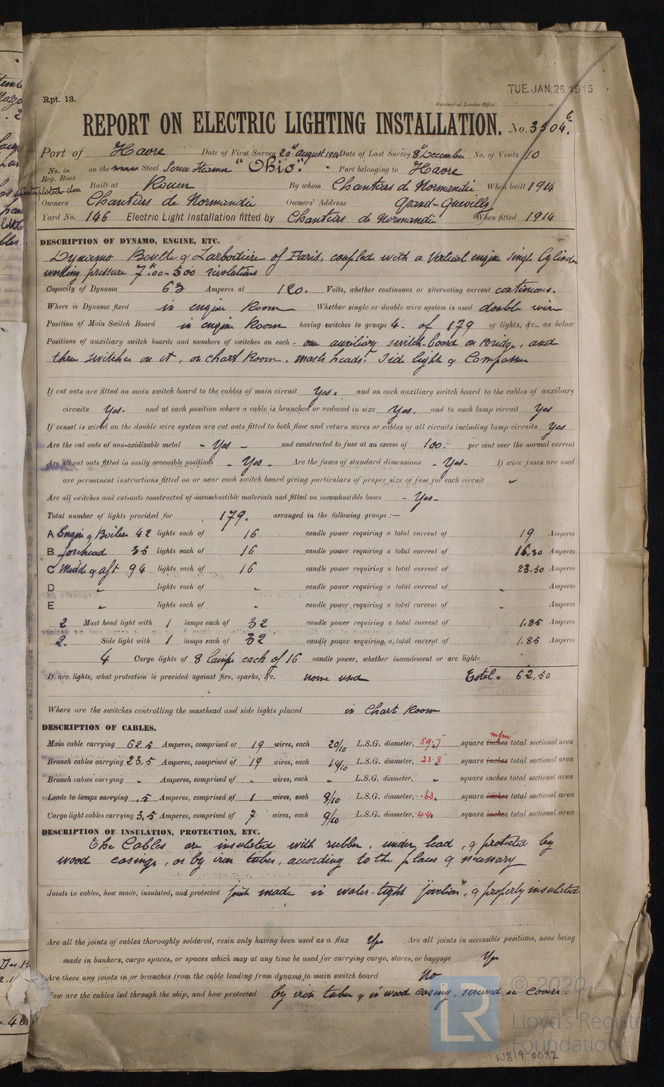 TUE. JAN. 26 1915
Rpt. 13.
Received at London Office
REPORT ON ELECTRIC LIGHTING INSTALLATION. No. 3504.
Port of Havre Date of First Survey 20th August 1914 Date of Last Survey 8th December No. of Visits 10
No. in Reg. Book on the Steel Screw Steamer "Ohio" Port belonging to Havre
Built at Rouen By whom Chantiers de Normandie When built 1914
Owners Chantiers de Normandie Owners' Address Grand-Quevilly
Yard No. 146 Electric Light Installation fitted by Chantiers de Normandie When fitted 1914
DESCRIPTION OF DYNAMO, ENGINE, ETC.
Dynamo of Paris, coupled with a Vertical engine Single Cylinder
working pressure 500 revolutions
Capacity of Dynamo 63 Amperes at 120. Volts, whether continuous or alternating current continuous.
Where is Dynamo fixed in engine Room Whether single or double wire system is used double wire
Position of Main Switch Board in engine Room having switches to groups 4 of 179 of lights, &c., as below
Positions of auxiliary switch boards and numbers of switches on each - one auxiliary switch board on Bridge, and
three switches on it, on chart Room, mast heads, Side light & Compass
If cut outs are fitted on main switch board to the cables of main circuit Yes. and on each auxiliary switch board to the cables of auxiliary
circuits Yes. and at each position where a cable is branched or reduced in size Yes. and to each lamp circuit Yes
If vessel is wired on the double wire system are cut outs fitted to both flow and return wires or cables of all circuits including lamp circuits Yes
Are the cut outs of non-oxidizable metal - Yes - and constructed to fuse at an excess of 100. per cent over the normal current
Are all cut outs fitted in easily accessible positions - Yes - Are the fuses of standard dimensions - Yes - If wire fuses are used
are permanent instructions fitted on or near each switch board giving particulars of proper size of fuse for each circuit "
Are all switches and cut-outs constructed of incombustible materials and fitted on incombustible bases - Yes -
Total number of lights provided for 179. arranged in the following groups :—
A Engine & Boiler 42 lights each of 16 candle power requiring a total current of 19 Amperes
B forehead 35 lights each of 16 candle power requiring a total current of 16.30 Amperes
C Midd & aft 94 lights each of 16 candle power requiring a total current of 23.50 Amperes
D " lights each of " candle power requiring a total current of " Amperes
E " lights each of " candle power requiring a total current of " Amperes
2 Mast head light with 1 lamps each of 32 candle power requiring a total current of 1.85 Amperes
2. Side light with 1 lamps each of 32 candle power requiring a total current of 1.85 Amperes
4 Cargo lights of 8 lamps each of 16 candle power, whether incandescent or arc lights
If arc lights, what protection is provided against fire, sparks, &c. none used Total = 62,50
Where are the switches controlling the masthead and side lights placed in Chart Room
DESCRIPTION OF CABLES.
Main cable carrying 62.5 Amperes, comprised of 19 wires, each 20/10 L.S.G. diameter, 59.7 square inches mm total sectional area
Branch cables carrying 23,5 Amperes, comprised of 19 wires, each L.S.G. diameter, 23.8 square inches total sectional area
Branch cables carrying " Amperes, comprised of " wires, each " L.S.G. diameter, " square inches total sectional area
Leads to lamps carrying .5 Amperes, comprised of 1 wires, each 9/10 L.S.G. diameter, .63 square inches total sectional area
Cargo light cables carrying 3,5 Amperes, comprised of 7 wires, each 9/10 L.S.G. diameter, 4.4 square inches total sectional area
DESCRIPTION OF INSULATION, PROTECTION, ETC.
The Cables are insulated with rubber, under lead, & protected by
wood casings, or by iron tubes, according to the places & necessary
Joints in cables, how made, insulated, and protected joints made in water-tight "jonction", & properly insulated
Are all the joints of cables thoroughly soldered, resin only having been used as a flux Yes Are all joints in accessible positions, none being
made in bunkers, cargo spaces, or spaces which may at any time be used for carrying cargo, stores, or baggage Yes
Are there any joints in or branches from the cable leading from dynamo to main switch board No
How are the cables led through the ship, and how protected by iron tubes & in wood casing, screwed in covers.
LR
Lloyd's Register
Foundation
W819-0082